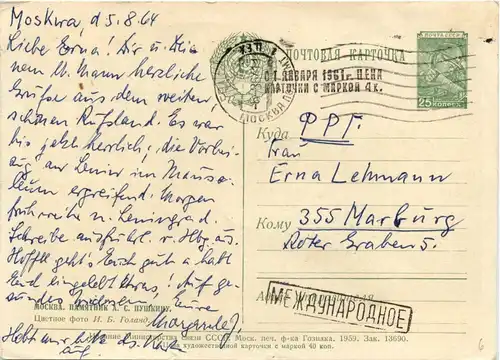 Moskwa, d 5.8.64
Liebe Erna! Dir u. Dei-
nem Mann herzliche
Grüße aus dem weiten
schönen Rußland. Es war
bis jetzt herrlich, die Vorbei-
am Lenin im Mauso-
leum ergreifend. Morgen
früh n. Leningrad.
Schreibe ausführl. v. Hbg. aus.
Hoffe geht's Euch gut u. habt
Euch eingelebt
ПОЧТОВАЯ КАРТОЧКА
С 1 ЯНВАРЯ 1961 г. ЦЕНА
КАРТОЧКИ С МАРКОЙ 4 к.
ПОЧТА СССР
25 КОПЕЕК
МОСКВА
Куда
ФРГ.
Frau
Erna Lehmann
Кому 355 Marburg
Roter Graben 5.
МЕЖДУНАРОДНОЕ
МОСКВА. ПАМЯТНИК А. С. ПУШКИНУ.
Цветное фото И. Б. Голанд
Издание Министерства связи СССР. Моск. печ. ф-ка Гознака. 1959. Зак. 13690.
художественной карточки с маркой 40 коп.
6